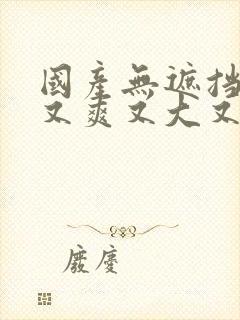 國產無遮挡
又爽又大又
廢慶